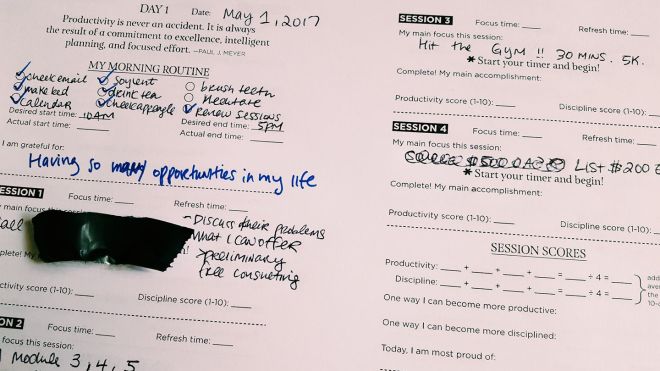 DAY 1 Date: May 1, 2017
Productivity is never an accident. It is always
the result of a commitment to excellence, intelligent
planning, and focused effort. —PAUL J. MEYER
MY MORNING ROUTINE
check email soylent brush teeth
make bed drink tea Meditate
calendar Renew Sessions
Desired start time: 10AM Desired end time: 5PM
Actual start time: Actual end time:
I am grateful for:
Having so many opportunities in my life
ESSION 1 Focus time: Refresh time:
y main focus
all
- Discuss their problems
- What I can offer
> preliminary
free consulting
plete! My
oductivity score (1-10): Discipline score (1-10):
ON 2 Focus time: Refresh time:
focus this session:
Module 3, 4, 5
SESSION 3 Focus time: Refresh time:
My main focus this session:
Hit the GYM !! 30 MINS. 5K.
* Start your timer and begin!
Complete! My main accomplishment:
Productivity score (1-10): Discipline score (1-10):
SESSION 4 Focus time: Refresh time:
My main focus this session:
LIST $200
* Start your timer and begin!
Complete! My main accomplishment:
Productivity score (1-10): Discipline score (1-10):
SESSION SCORES
Productivity: + + + = ÷ 4 =
Discipline: + + + = ÷ 4 =
add
ave
the
10-
One way I can become more productive:
One way I can become more disciplined:
Today, I am most proud of: